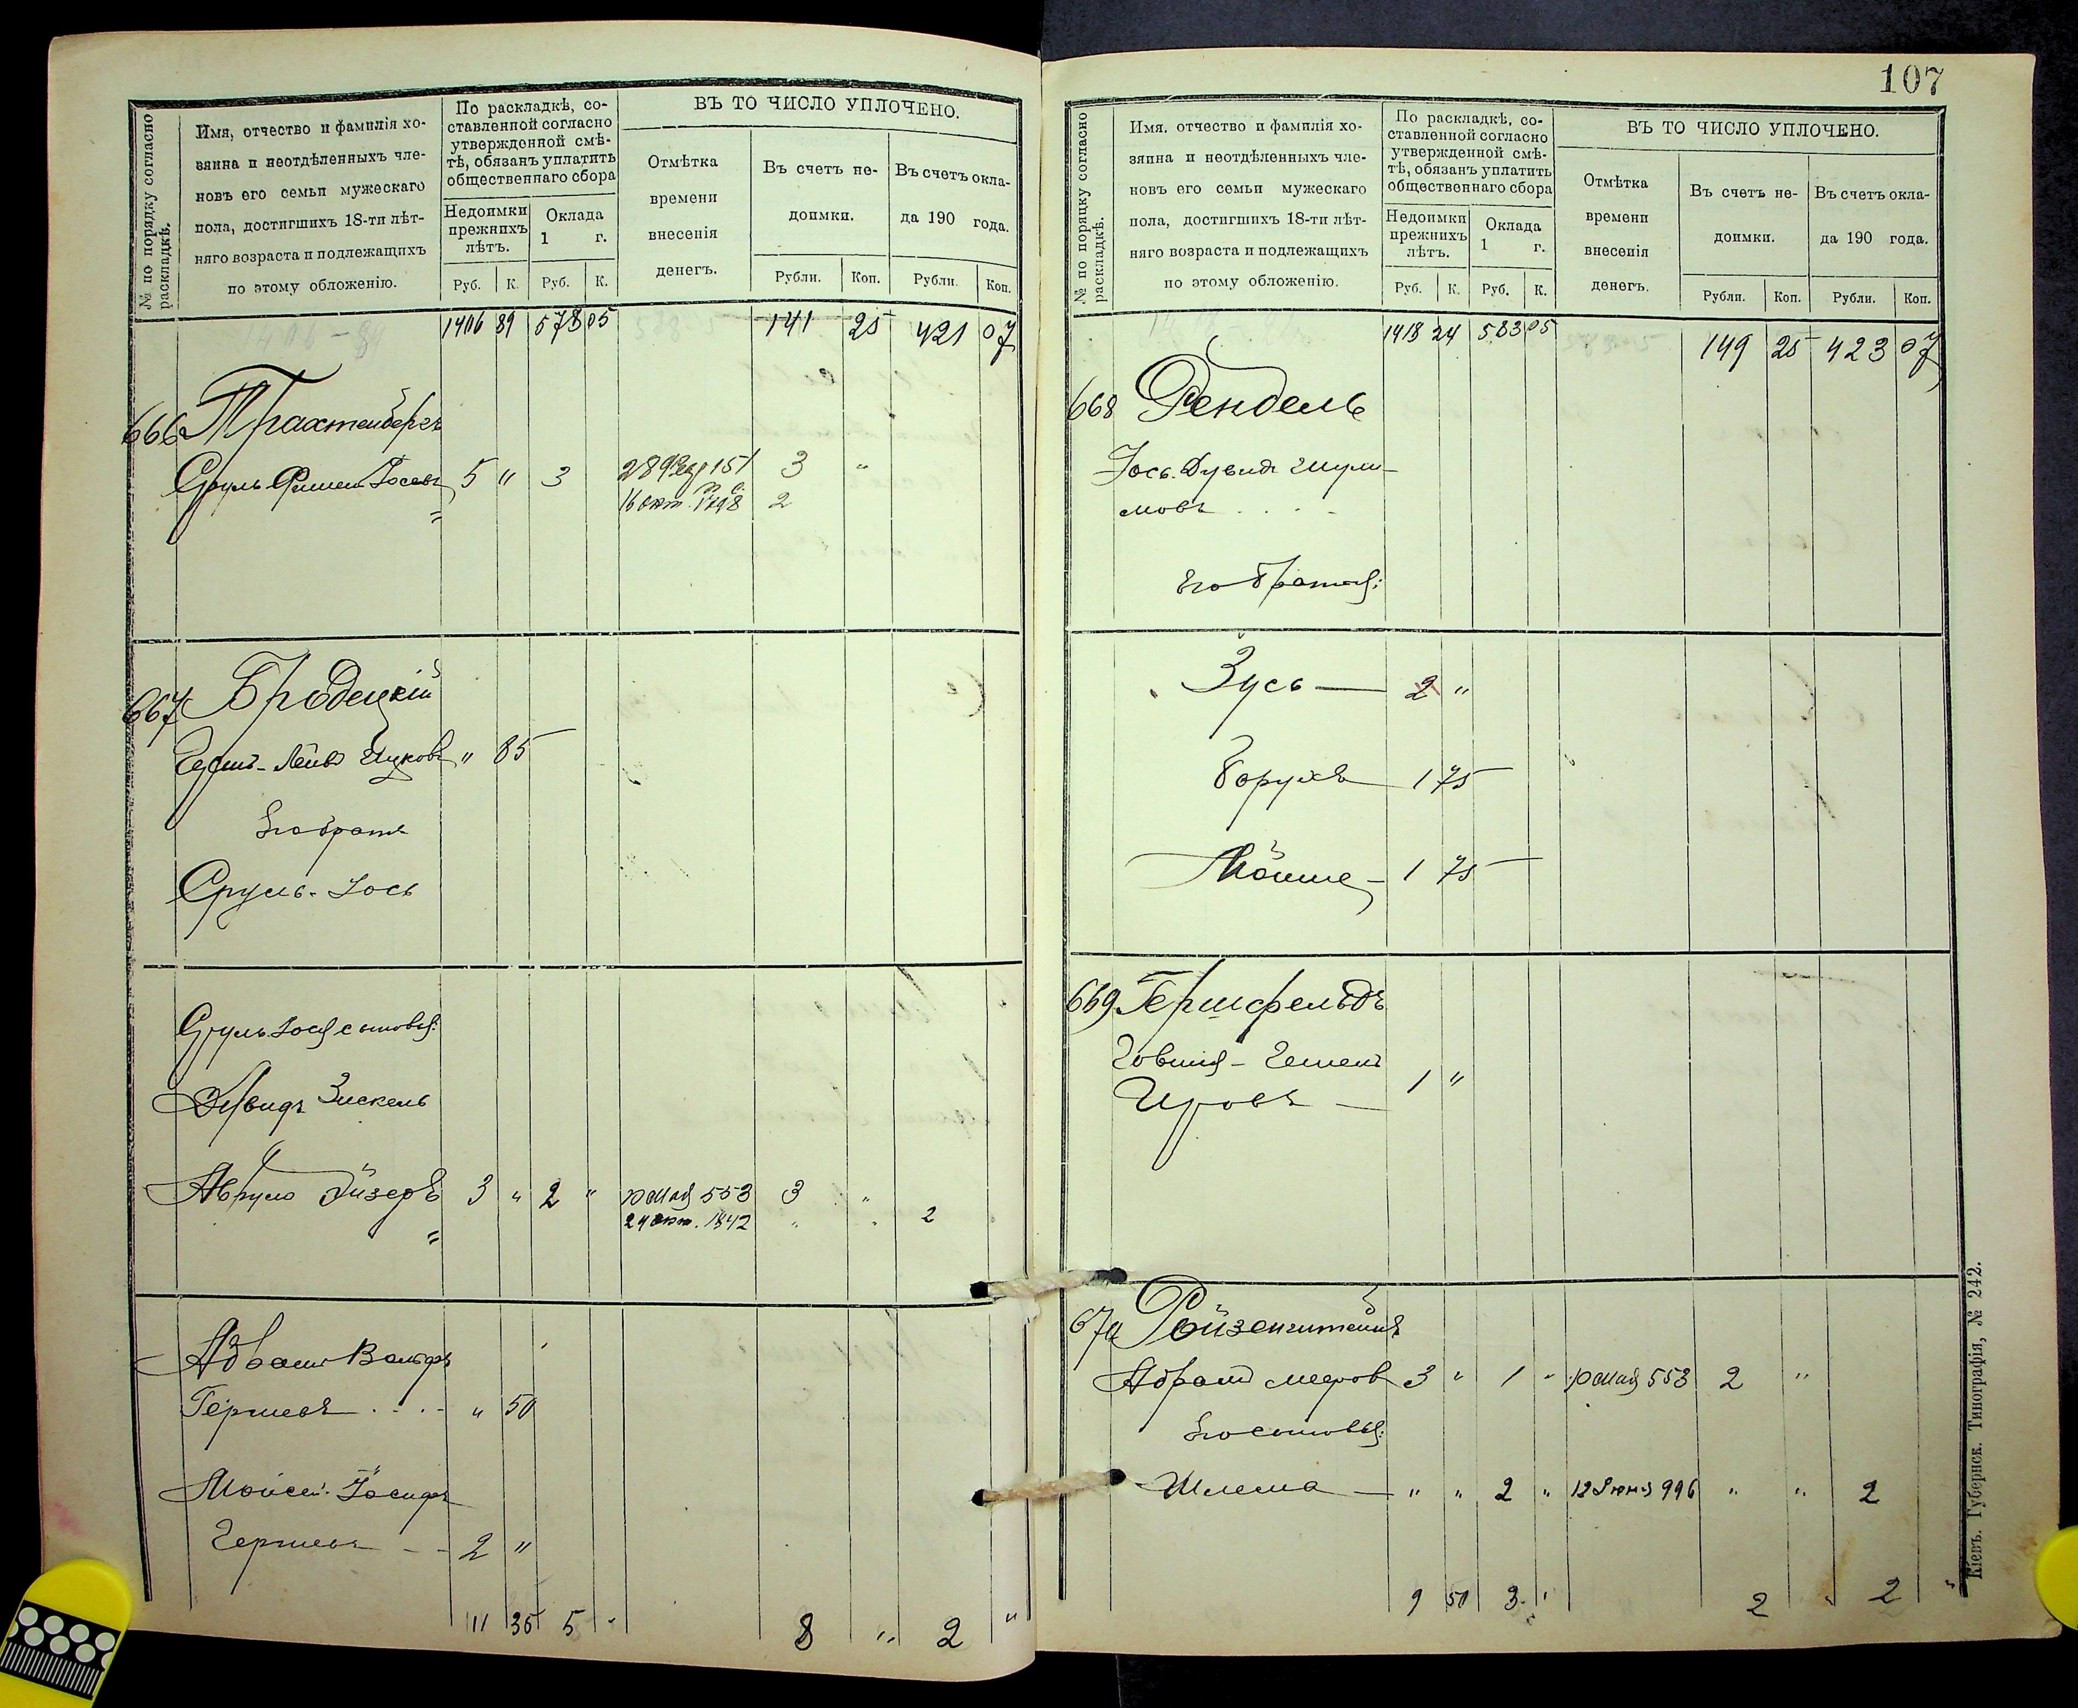 № по порядку согласно раскладкѣ.
Имя, отчество и фамилія хо-
зяина и неотдѣленныхъ чле-
новъ его семьи мужескаго
пола, достигшихъ 18-ти лѣт-
няго возраста и подлежащихъ
по этому обложенію.
По раскладкѣ, со-
ставленной согласно
утвержденной смѣ-
тѣ, обязанъ уплатить
общественнаго сбора
Недоимки прежнихъ лѣтъ.
Оклада 1 г.
Руб. К. Руб. К.
ВЪ ТО ЧИСЛО УПЛОЧЕНО.
Отмѣтка
времени
внесенія
денегъ.
Въ счетъ не-
доимки.
Въ счетъ окла-
да 190 года.
Рубли. Коп. Рубли. Коп.
1406 89 578 05 141 25 421 07
666 Трахтенбергъ
Сруль Фишель Іосевъ 5 " 3 151 3 "
16 окт. 2
667 Бродецкій
Лейба Ицковъ " 85
Его братъ
Сруль-Іось
Сруль Іося сыновья:
Дувидъ Зискель
Аврумъ Эйзеръ 3 " 2 " мая 553 3 "
24 окт. 1842 " " 2
Абрамъ Вольфъ
Гершевъ " 50
Мойсей-Іосифъ
Гершевъ 2 "
11 35 5 8 " 2 "
107
№ по порядку согласно раскладкѣ.
Имя, отчество и фамилія хо-
зяина и неотдѣленныхъ чле-
новъ его семьи мужескаго
пола, достигшихъ 18-ти лѣт-
няго возраста и подлежащихъ
по этому обложенію.
По раскладкѣ, со-
ставленной согласно
утвержденной смѣ-
тѣ, обязанъ уплатить
общественнаго сбора
Недоимки прежнихъ лѣтъ.
Оклада 1 г.
Руб. К. Руб. К.
ВЪ ТО ЧИСЛО УПЛОЧЕНО.
Отмѣтка
времени
внесенія
денегъ.
Въ счетъ не-
доимки.
Въ счетъ окла-
да 190 года.
Рубли. Коп. Рубли. Коп.
1418 24 583 05 149 25 423 07
668 Рендель
Іось Дувидъ Шули-
мовъ
Его братья:
Зусь 2 "
Борухъ 1 75
Мойше 1 75
669 Гершфельдъ
Говшія-
1 "
670 Ройзенштейнъ
Абрамъ Мееровъ 3 " 1 " мая 553 2 "
Его сыновья:
Шлема " " 2 " 12 Іюня 996 " " 2
9 50 3 2 " 2 "
Кіевъ. Губернск. Типографія, № 242.